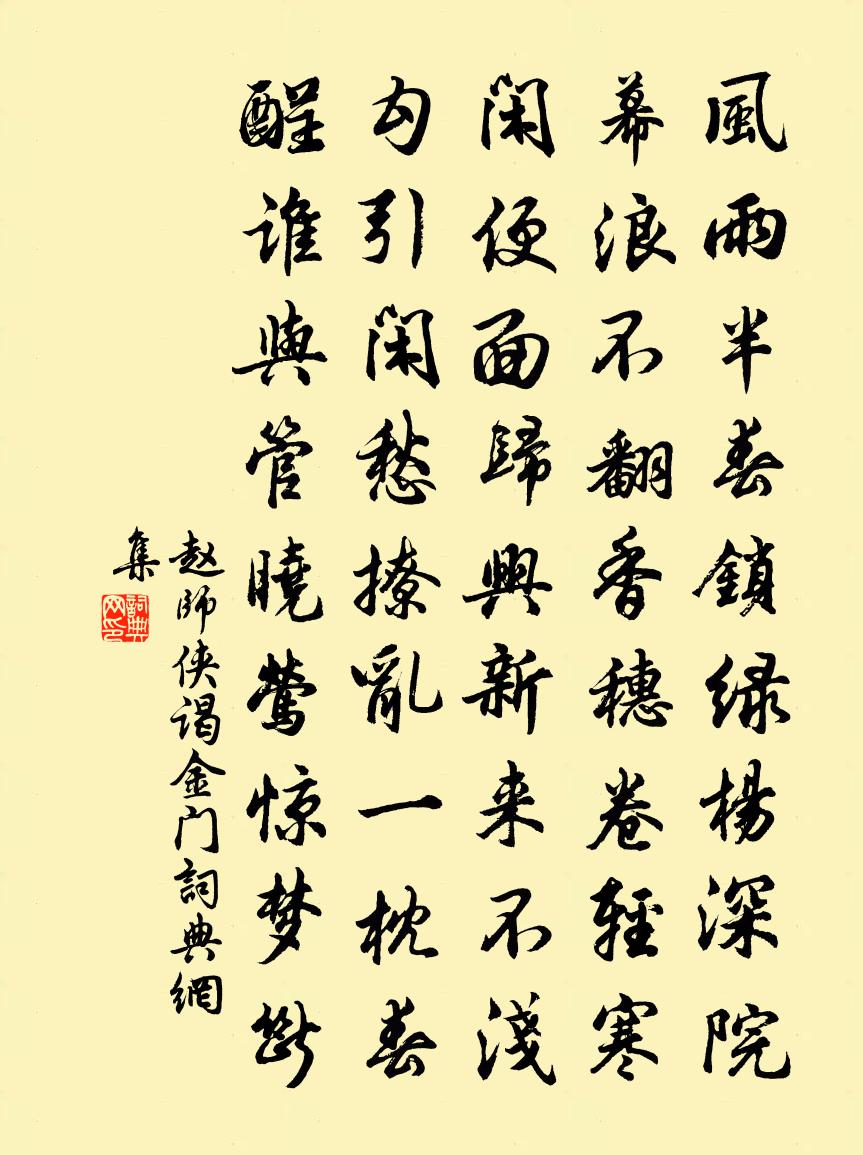 風雨半春鎖绿楊深院
幕浪不翻香穗卷輕寒
閑便面歸興新来不淺
勾引閑愁撩亂一枕春
醒誰與管曉鶯惊梦斷
赵師侠谒金门詞典網
集
詞典网印